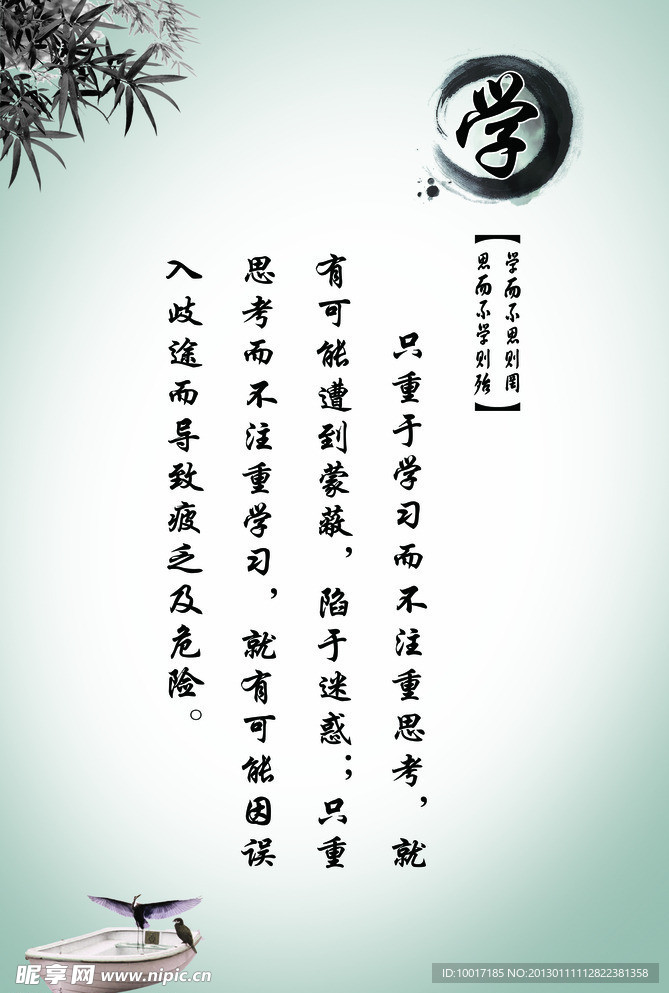 学
学而不思则罔
思而不学则殆
只重于学习而不注重思考，就
有可能遭到蒙蔽，陷于迷惑；只重
思考而不注重学习，就有可能因误
入歧途而导致疲乏及危险。
昵享网 www.nipic.cn
ID:10017185 NO:20130111112822381358